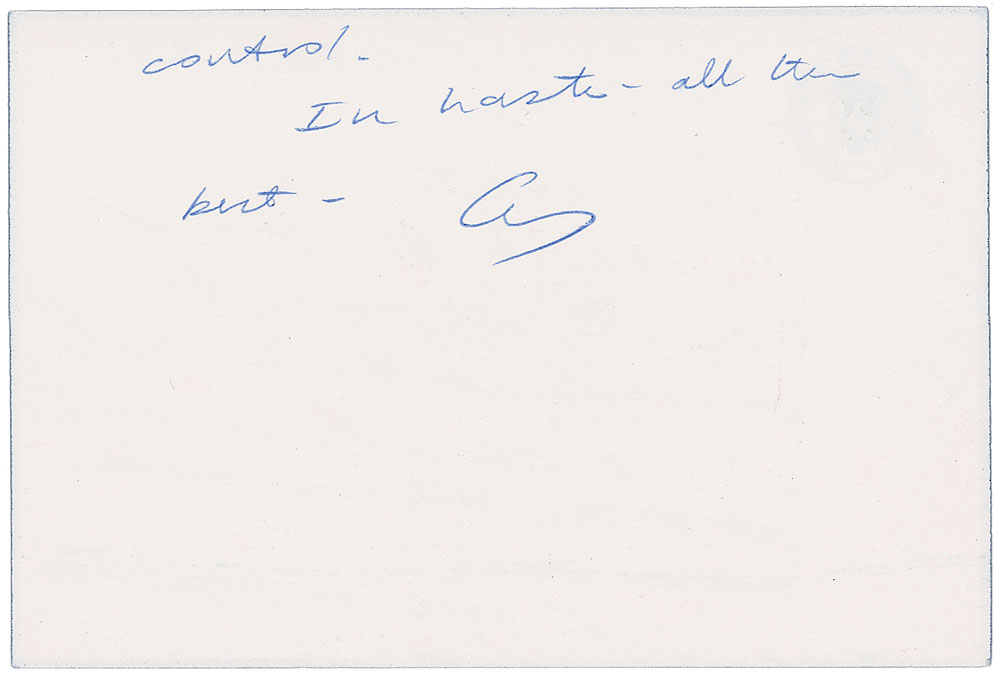 control.
In haste - all the
best -